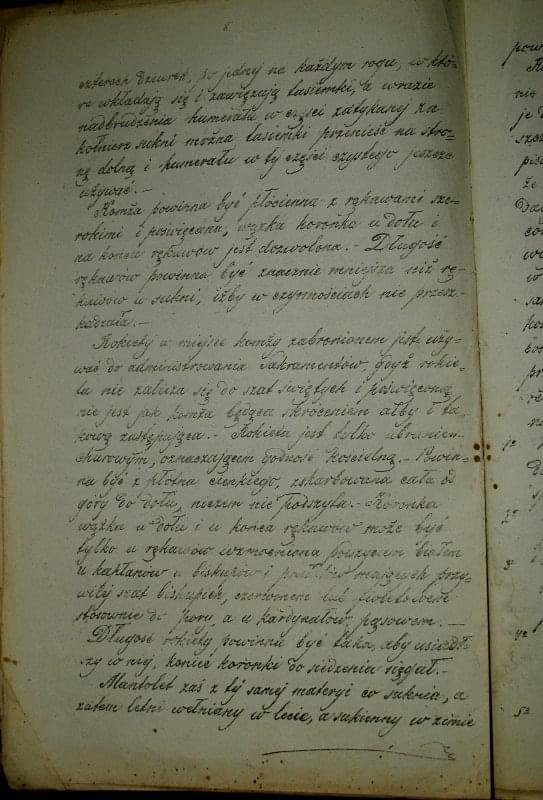 8.
czterech dziurek, po jednej na każdym rogu, w któ=
re wkładają się i zawięzują tasiemki, a w razie
nadbrudzenia humerału w części zatykanej za
kołnierz sukni można tasiemki przenieść na stro=
nę dolną i humerału w tej części czystego jeszcze
używać. —
Komża powinna być płócienna z rękawami sze=
rokimi i poświęcana, wązka koronka u dołu i
na końcu rękawów jest dozwolona. — Długość
rękawów powinna być znacznie mniejsza niż rę=
kawów u sukni, iżby w czynnościach nie przesz=
kadzała. —
Rokiety w miejsce komży zabronionem jest uży=
wać do administrowania Sakramentów, gdyż rokie=
ta nie zalicza się do szat świętych i poświęconą
nie jest jak komża będąca skróceniem alby i ta=
kową zastępująca. — Rokieta jest tylko ubraniem
chórowym, oznaczającem godność Kościelną. — Powin=
na być z płótna cienkiego, zskarbowana cała od
góry do dołu, niczem nie podszyta. — Koronka
wązka u dołu i u końca rękawów może być
tylko u rękawów wzmocniona podszyciem białem
u kapłanów u biskupów i mających przy=
wilej szat biskupich, czerwonem lub fioletowem
stosownie do pory, a u kardynałów pąsowem. —
Długość rokiety powinna być taka, aby usiadł=
szy w niej, koniec koronki do siedzenia sięgał. —
Mantolet zaś z tej samej materyi co suknia, a
zatem letni wełniany w lecie, a sukienny w zimie
pow
nie
je
że
w
1º
2º
3º
4º
5º